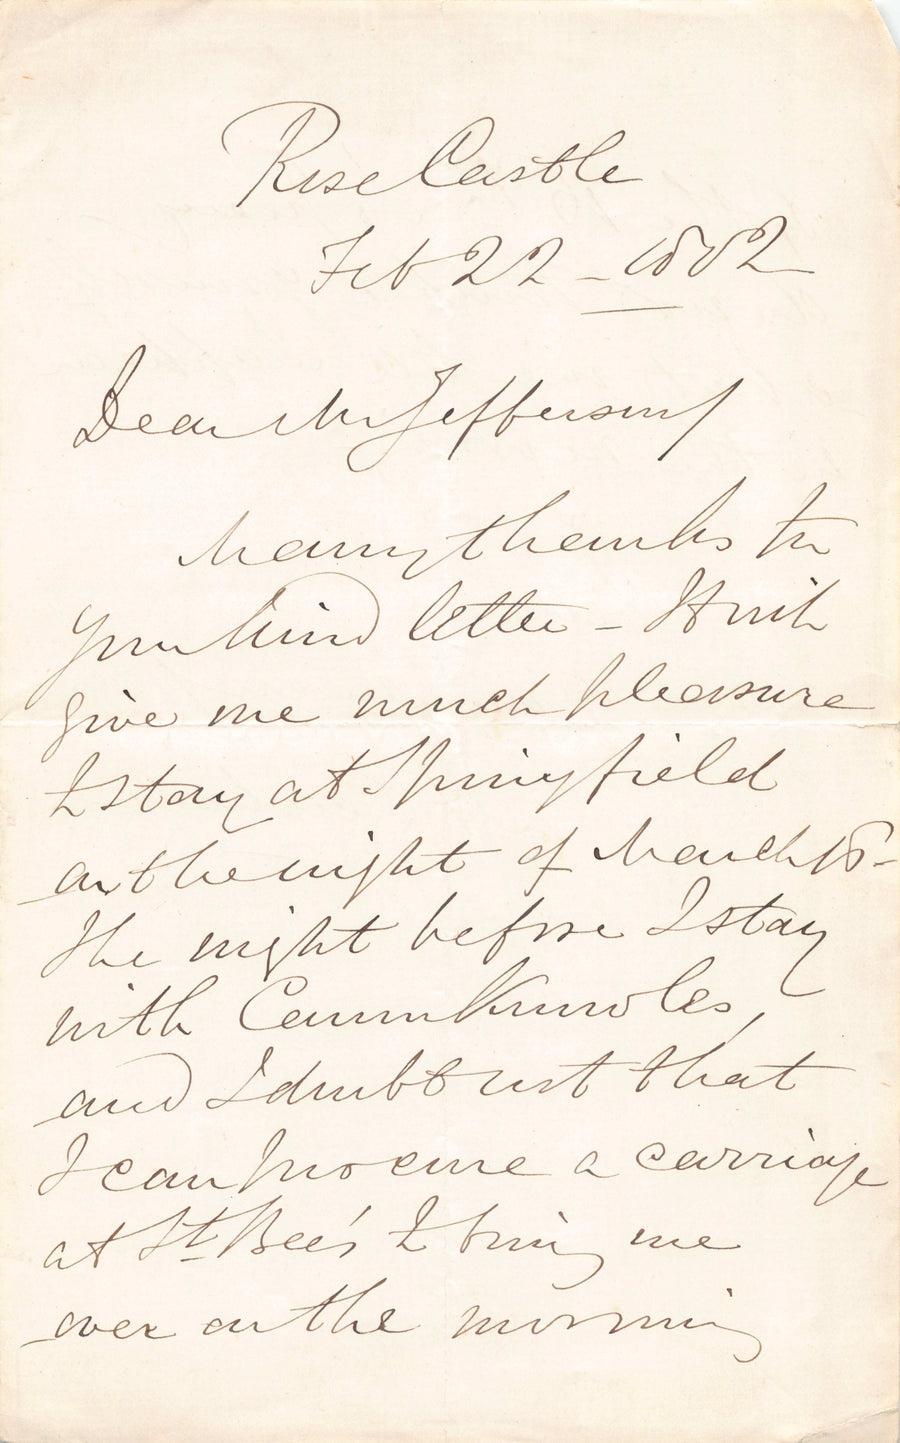 Rose Castle
Feb 22 - 1882
Dear Mr Jefferson/
Many thanks for
your kind letter - It will
give me much pleasure
to stay at Springfield
on the night of March 18 -
The night before I stay
with Canon Knowles,
and I doubt not that
I can procure a carriage
at St. Bee's to bring me
over on the morning